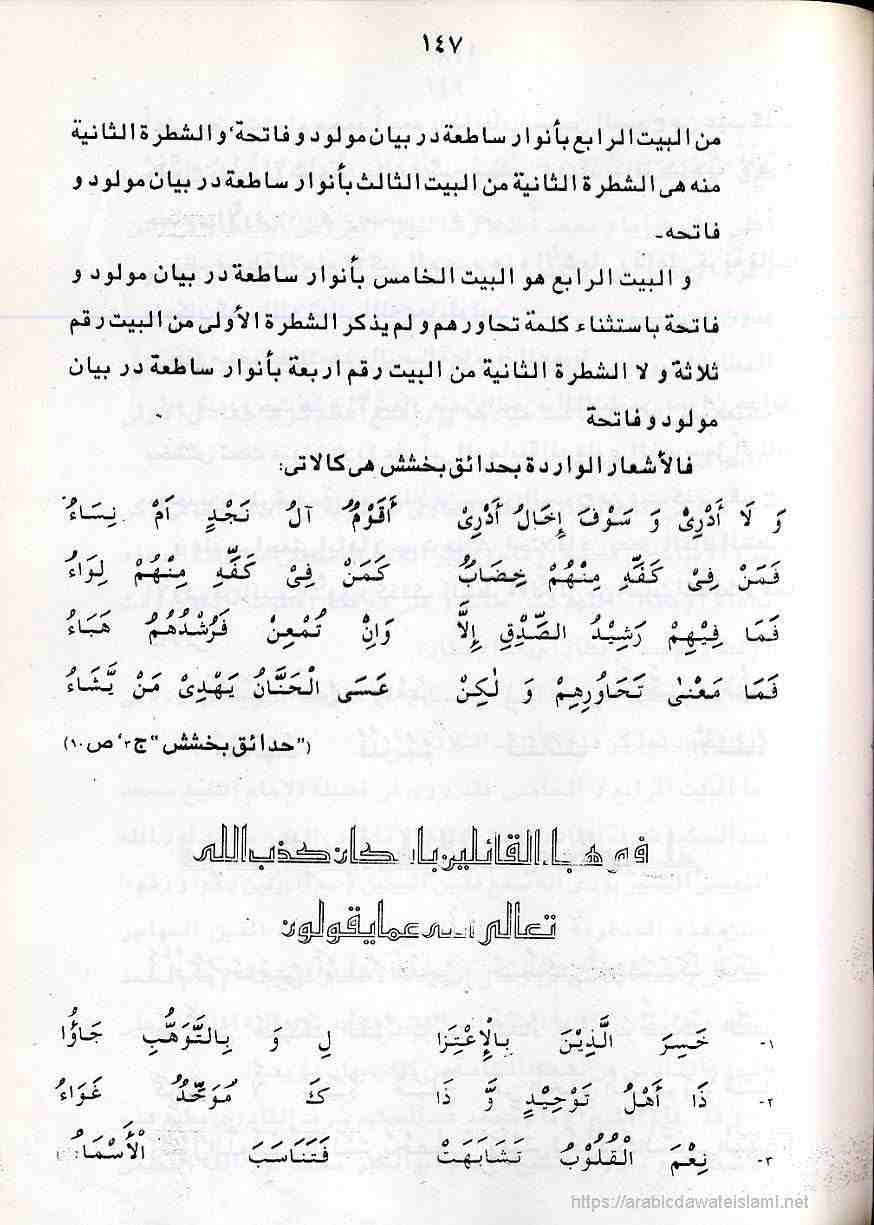 ١٤٧
من البيت الرابع بأنوار ساطعة در بيان مولود و فاتحة، و الشطرة الثانية
منه هى الشطرة الثانية من البيت الثالث بأنوار ساطعة در بيان مولود و
فاتحه۔
و البيت الرابع هو البيت الخامس بأنوار ساطعة در بيان مولود و
فاتحة باستثناء كلمة تحاورهم و لم يذكر الشطرة الأولى من البيت رقم
ثلاثة و لا الشطرة الثانية من البيت رقم اربعة بأنوار ساطعة در بيان
مولود و فاتحة
فالأشعار الواردة بحدائق بخشش هى كالاتى:
وَ لَا أَدْرِىْ وَ سَوْفَ إِخَالُ أَدْرِىْ أَقَوْمٌ آلُ نَجْدٍ اَمْ نِسَاءُ
فَمَنْ فِىْ كَفِّهِ مِنْهُمْ خِضَابٌ كَمَنْ فِىْ كَفِّهِ مِنْهُمْ لِوَاءُ
فَمَا فِيْهِمْ رَشِيْدُ الصِّدْقِ إِلَّا وَاِنْ تُمْعِنْ فَرُشْدُهُمْ هَبَاءُ
فَمَا مَعْنٰى تَحَاوُرِهِمْ وَ لٰكِنْ عَسَى الْحَنَّانُ يَهْدِىْ مَنْ يَّشَاءُ
("حدائق بخشش" ج٣، ص١٠)
فى هجاء القائلين بإمكان كذب الله
تعالى الله عما يقولون
١- خَسِرَ الَّذِيْنَ بِالْاِعْتِزَا لِ وَ بِالتَّوَهُّبِ جَاؤُا
٢- ذَا أَهْلُ تَوْحِيْدٍ وَّ ذَا كَ مُوَحِّدٌ غَوَاءُ
٣- نِعْمَ الْقُلُوْبُ تَشَابَهَتْ فَتَنَاسَبَ الْأَسْمَاءُ
https://arabicdawateislami.net